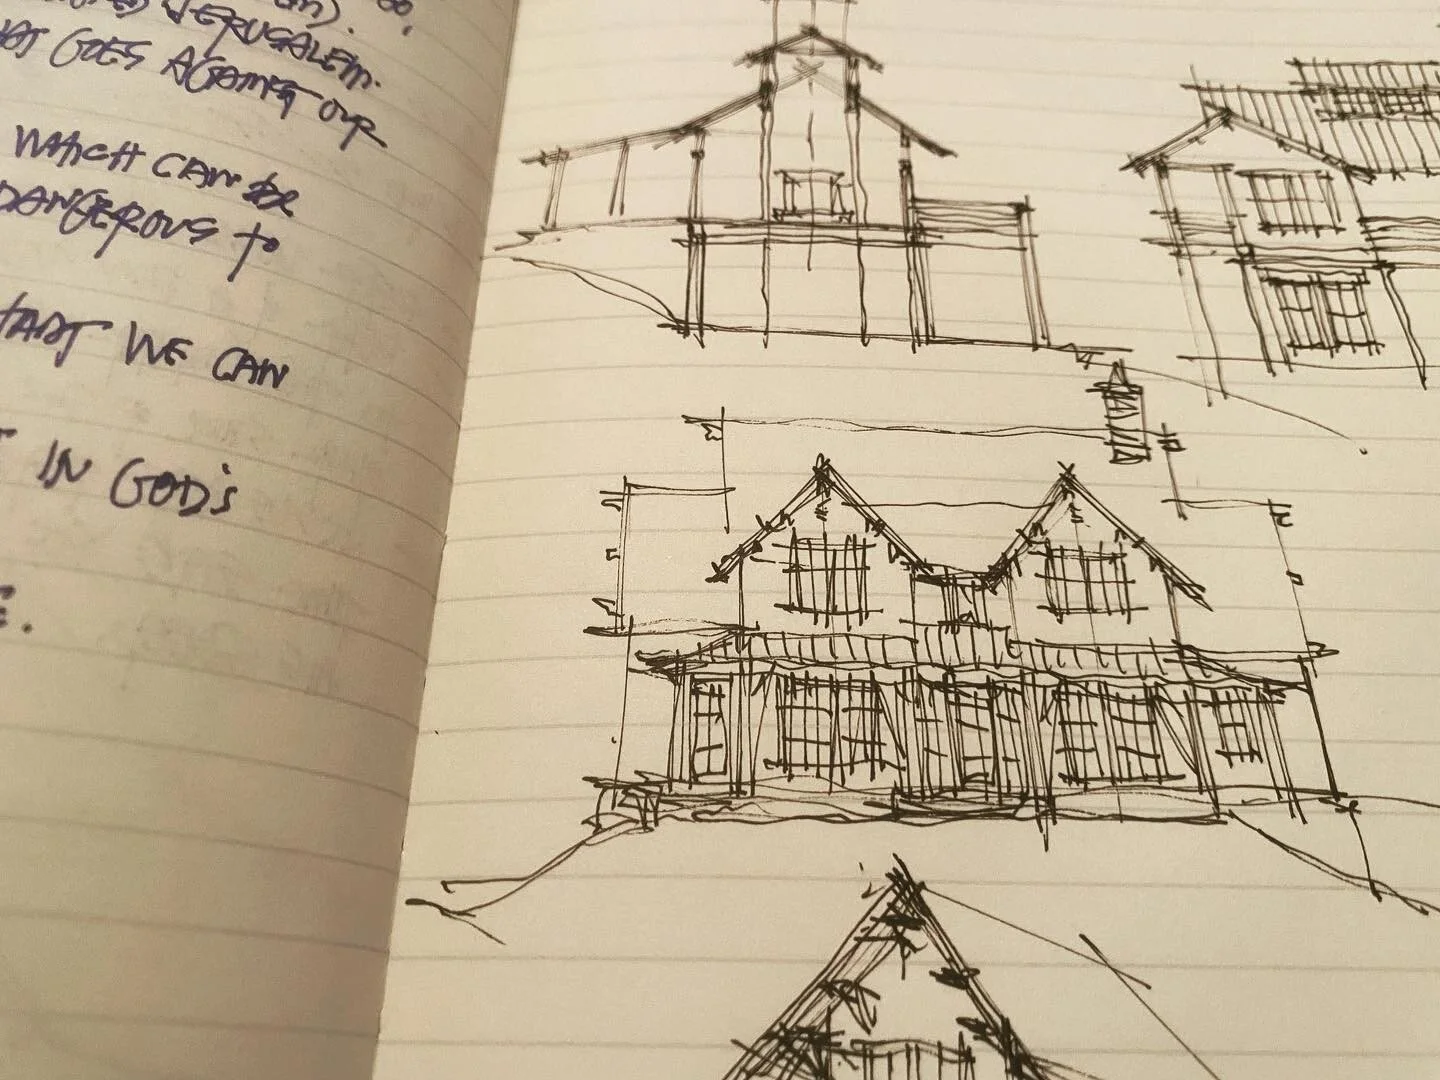 JERUSALEM.
GOES AGAINST OUR
WHICH CAN BE
DANGEROUS TO
WE CAN
IN GOD'S